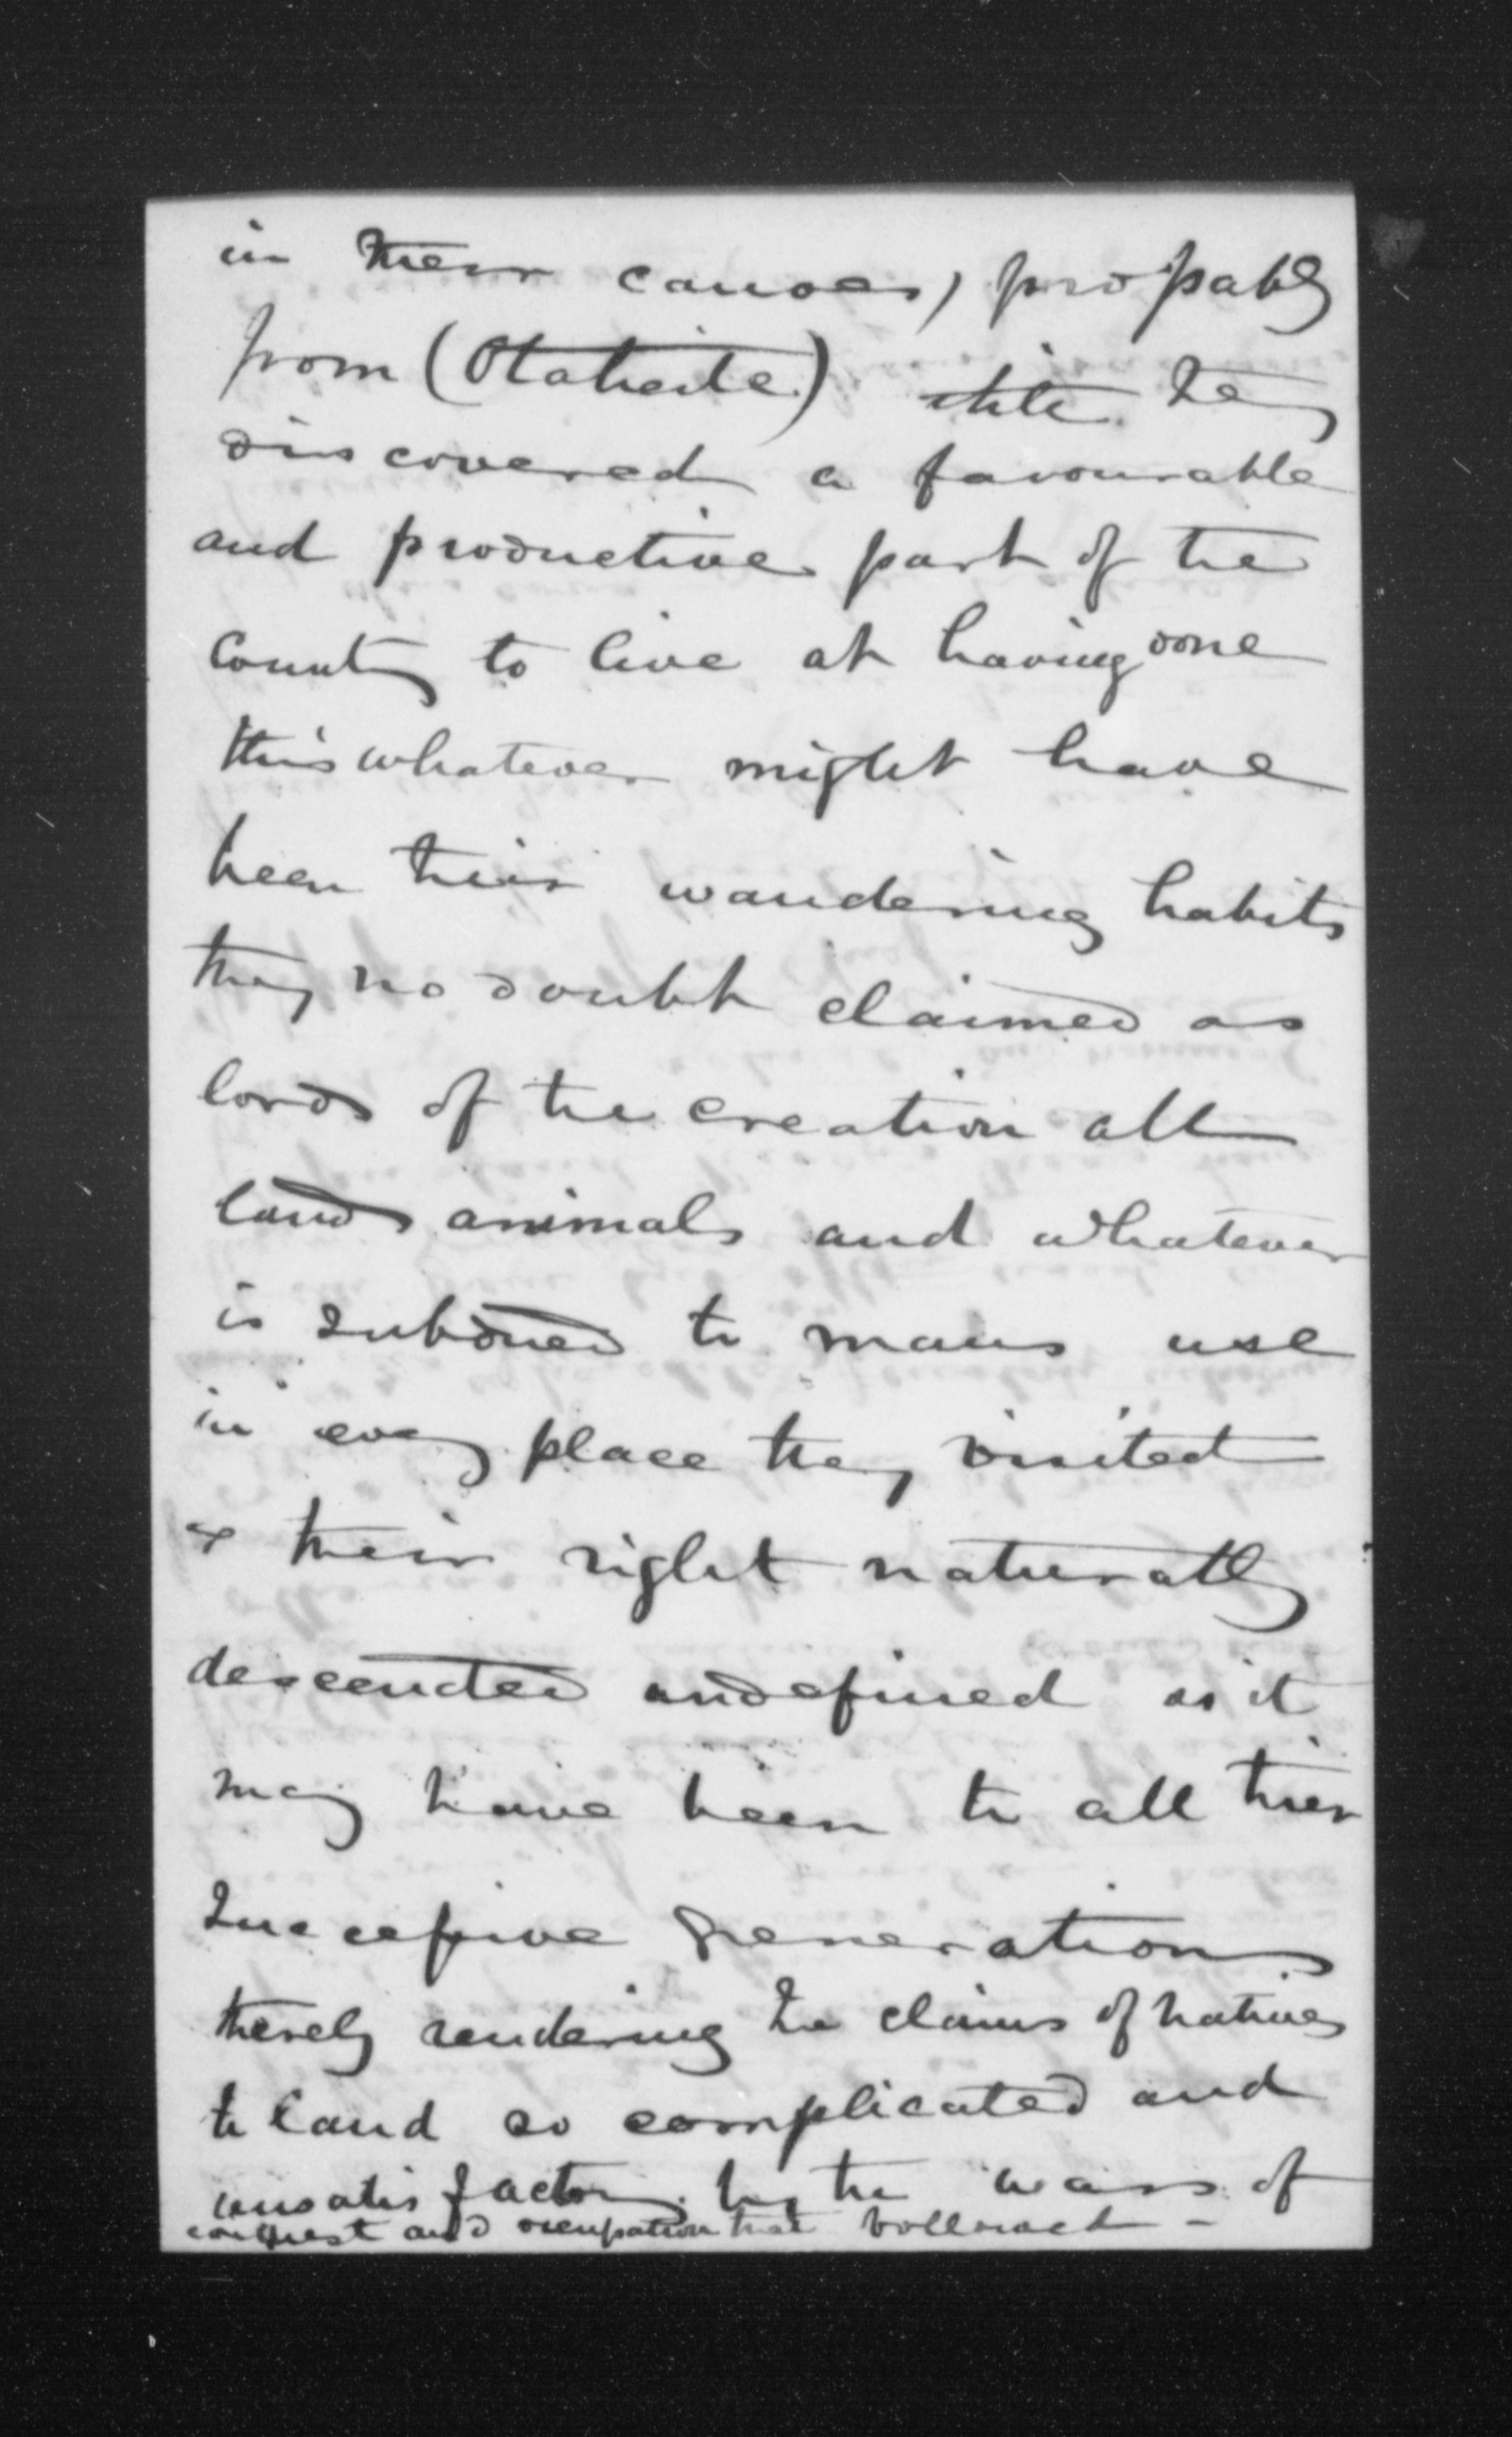 in their canoes, propably
from (Otaheite) they
discovered a favourable
and productive part of the
country to live at having done
this whatever might have
been their wandering habits
they no doubt claimed as
lords of the creation all
lands animals and whatever
is subdued to mans use
in every place they visited
& their right naturally
descended undefined as it
may have been to all their
successive generations
therely rendering the claims of natives
to land so complicated and
unsatisfactory by the wars of
conquest and occupation that